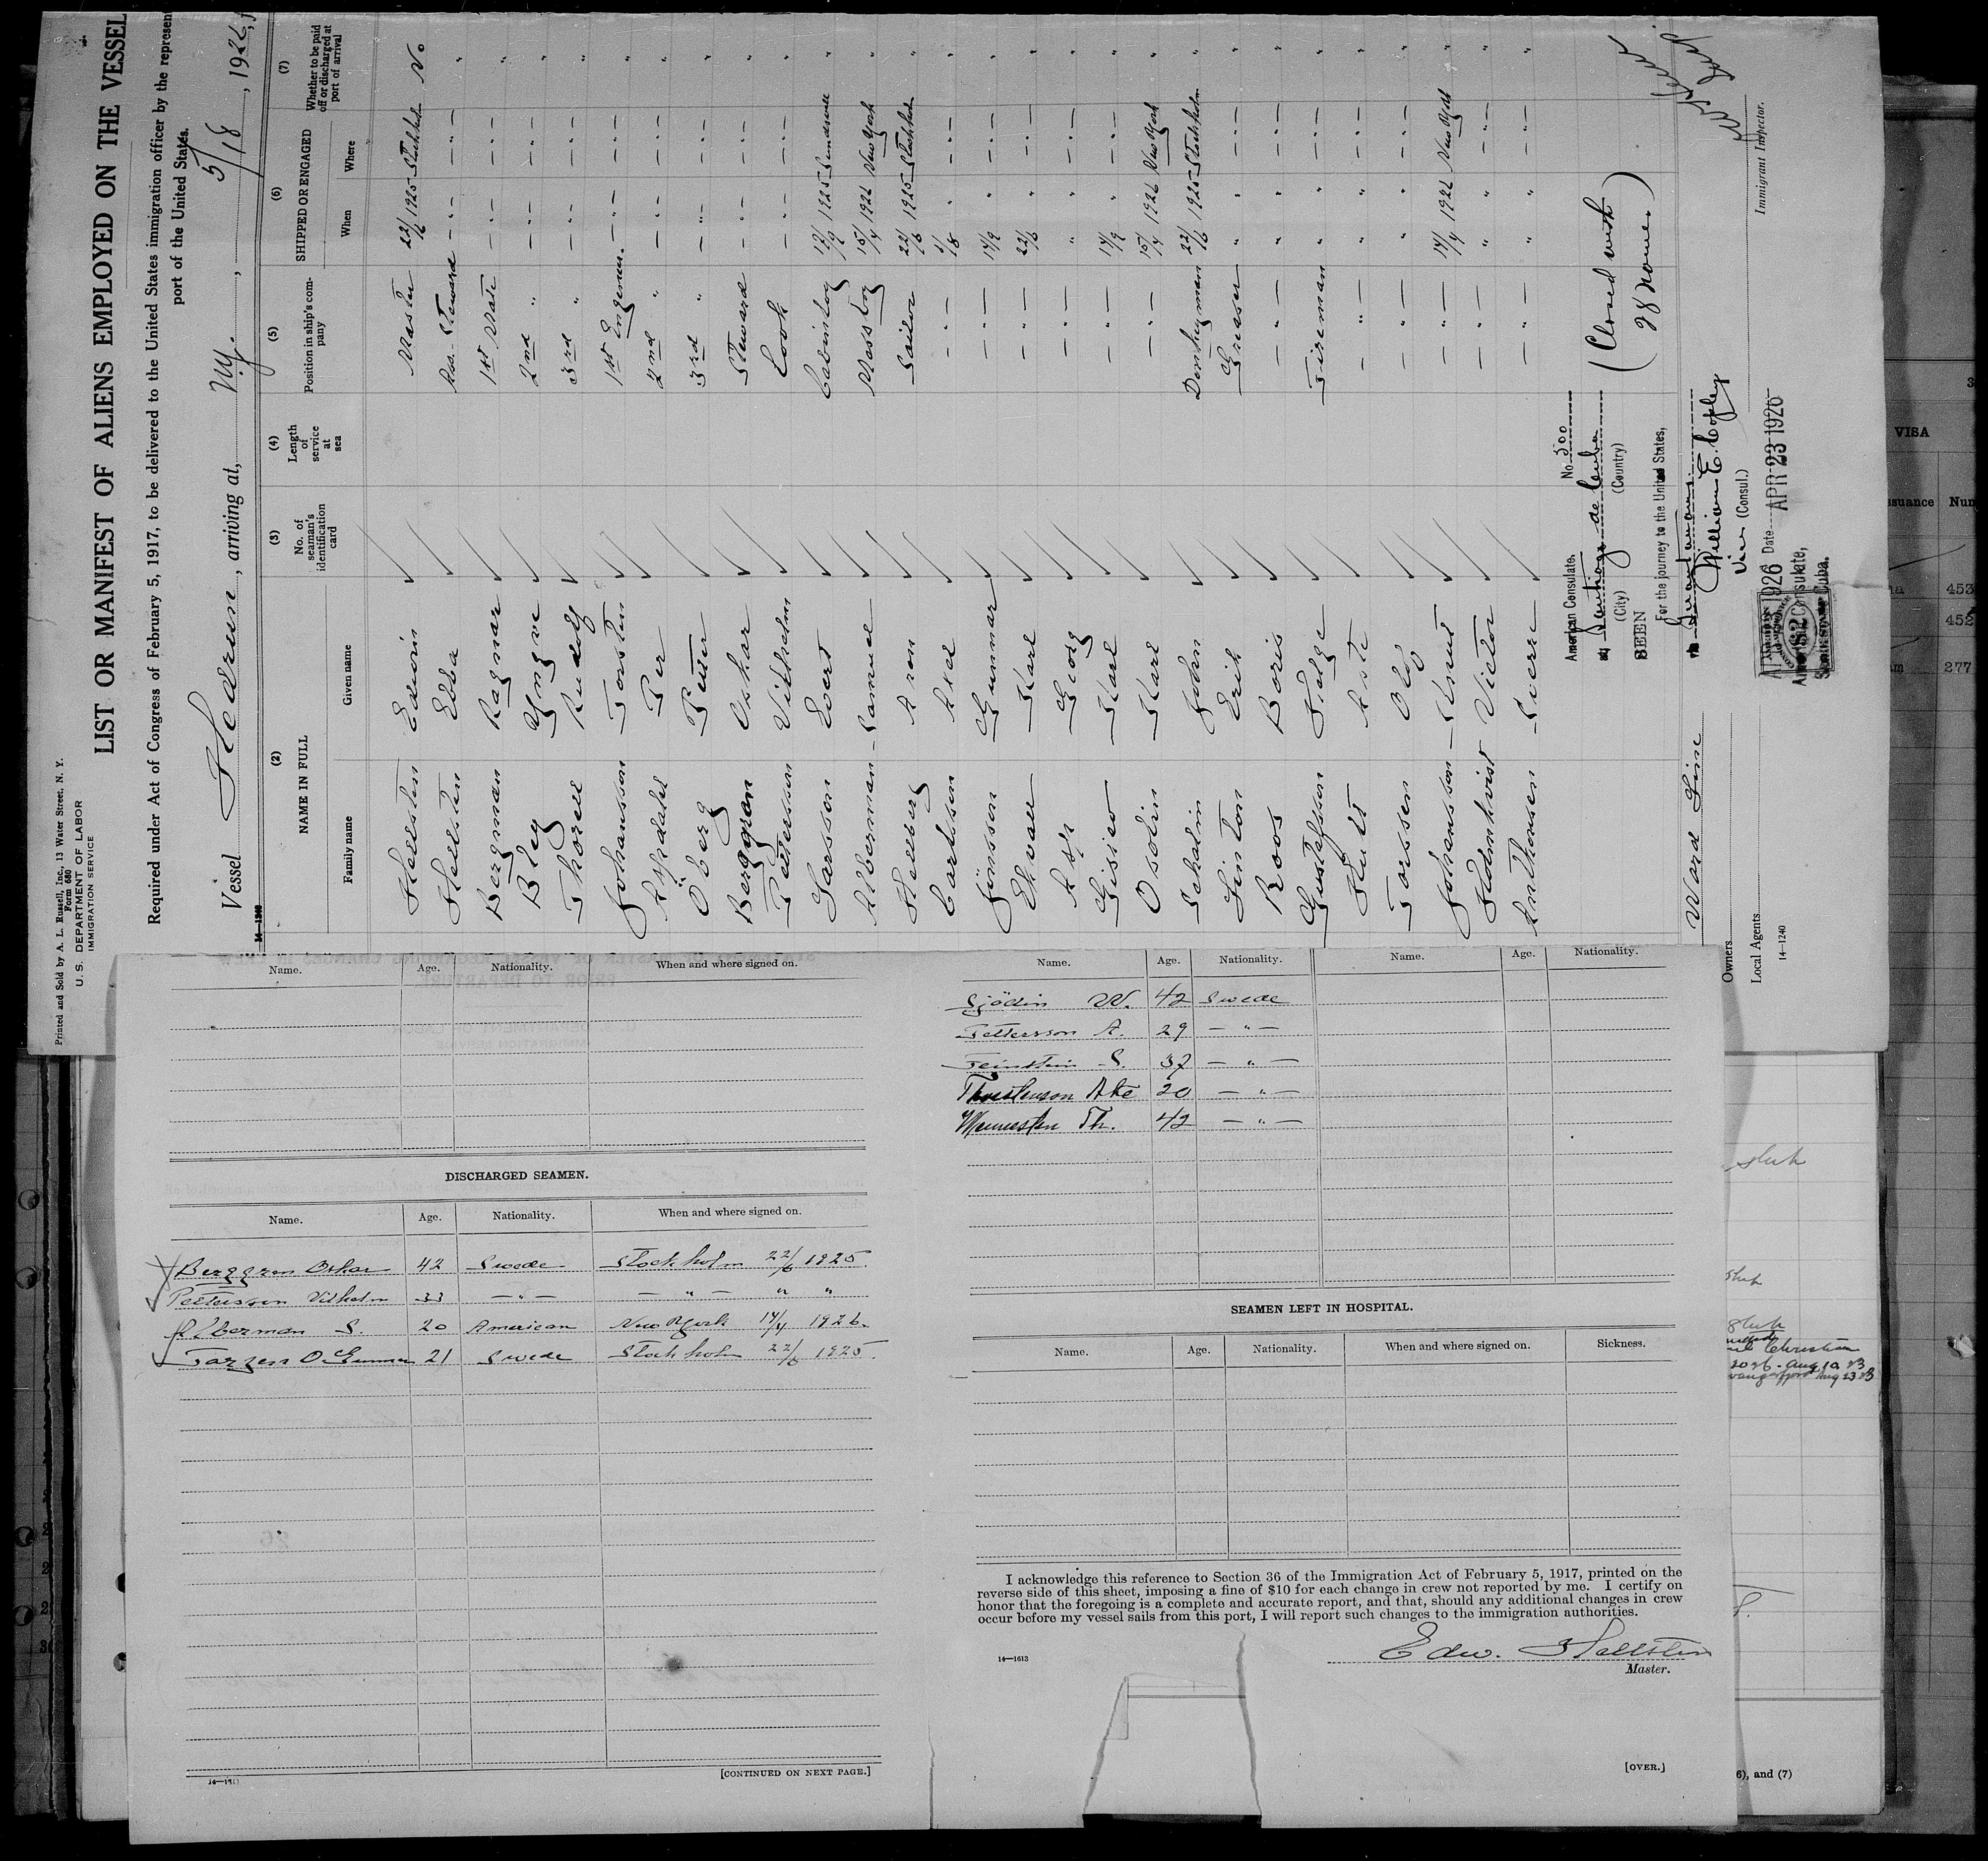 Printed and Sold by A. L. Russell, Inc., 13 Water Street, N. Y.
Form 680
U. S. DEPARTMENT OF LABOR
IMMIGRATION SERVICE
LIST OR MANIFEST OF ALIENS EMPLOYED ON THE VESSEL
Required under Act of Congress of February 5, 1917, to be delivered to the United States immigration officer by the represen
port of the United States.
Vessel Hedrun, arriving at, N.Y., 5/18, 1926, f
14—1240
(2) (3) (4) (5) (6) (7)
NAME IN FULL
Family name Given name
No. of seaman's identification card
Length of service at sea
Position in ship's company
SHIPPED OR ENGAGED
When Where
Whether to be paid off or discharged at port of arrival
Hellsten Edwin ✓ Master 22/6 1925 Stockholm No
Hellsten Ebba ✓ Ass. Steward — " — — " — "
Bergman Ragnar ✓ 1st Mate — " — — " — "
Bley Yngve ✓ 2nd " — " — — " — "
Thorell Rudolf ✓ 3rd " — " — — " — "
Johansson Torsten ✓ 1st Engeneer. — " — — " — "
Aspdahl Per ✓ 2nd " — " — — " — "
Öberg Petter ✓ 3rd " — " — — " — "
Berggren Oskar ✓ Steward — " — — " — "
Pettersson Vilhelm ✓ Cook — " — — " — "
Larsson Evert ✓ Cabinboy 17/9 1925 Sundsvall "
Alberman Samuel ✓ Mess boy 15/4 1926 New York "
Hellberg Aron ✓ Sailor 22/6 1925 Stockholm "
Carlsson Axel ✓ — " — 4/8 " — " — "
Jönsson Gunnar ✓ — " — 14/9 " — " — "
Ekvall Karl ✓ — " — 22/6 " — " — "
Georg ✓ — " — " " — " — "
Karl ✓ — " — 14/9 " — " — "
Osolin Karl ✓ — " — 15/4 1926 New York "
Sehalin John ✓ Donkeyman 22/6 1925 Stockholm "
Linton Erik ✓ Greaser " " — " — "
Roos Boris ✓ — " — " " — " — "
Gustafsson Helge ✓ Fireman " " — " — "
✓ — " — " " — " — "
Olof ✓ — " — " " — " — "
Johansson Knut ✓ — " — 14/4 1926 New York "
Holmkvist Victor ✓ — " — " " — " — "
Anthonsen Sverre ✓ — " — " " — " — "
American Consulate, No. 300
at Santiago de Cuba
(City) (Country)
SEEN
For the journey to the United States,
via Guantanamo
William E. Copley
Vice (Consul.)
Date APR 23 1926
(Closed with
28 names)
APR 23 1926
American Consulate,
Cuba.
Ward Line
Owners
Local Agents
Immigrant Inspector.
14—1240
Name. Age. Nationality. When and where signed on.
DISCHARGED SEAMEN.
Name. Age. Nationality. When and where signed on.
Berggren Oskar 42 Swede Stockholm 22/6 1925.
Pettersson Vilhelm 33 — " — — " — " "
Alberman S. 20 American New York 14/4 1926.
Gunnar 21 Swede Stockholm 22/6 1925.
14—1613
[CONTINUED ON NEXT PAGE.]
Name. Age. Nationality. Name. Age. Nationality.
Sjödin W. 42 Swede
Pettersson A. 29 — " —
Feinstein S. 37 — " —
Thorstenson Ake 20 — " —
Th. 42 — " —
SEAMEN LEFT IN HOSPITAL.
Name. Age. Nationality. When and where signed on. Sickness.
I acknowledge this reference to Section 36 of the Immigration Act of February 5, 1917, printed on the
reverse side of this sheet, imposing a fine of $10 for each change in crew not reported by me. I certify on
honor that the foregoing is a complete and accurate report, and that, should any additional changes in crew
occur before my vessel sails from this port, I will report such changes to the immigration authorities.
Edw. Hellsten
Master.
14—1613
[OVER.]
VISA
suance Num
453
452
277
Christian
Aug 10 23
Aug 23 23
6), and (7)